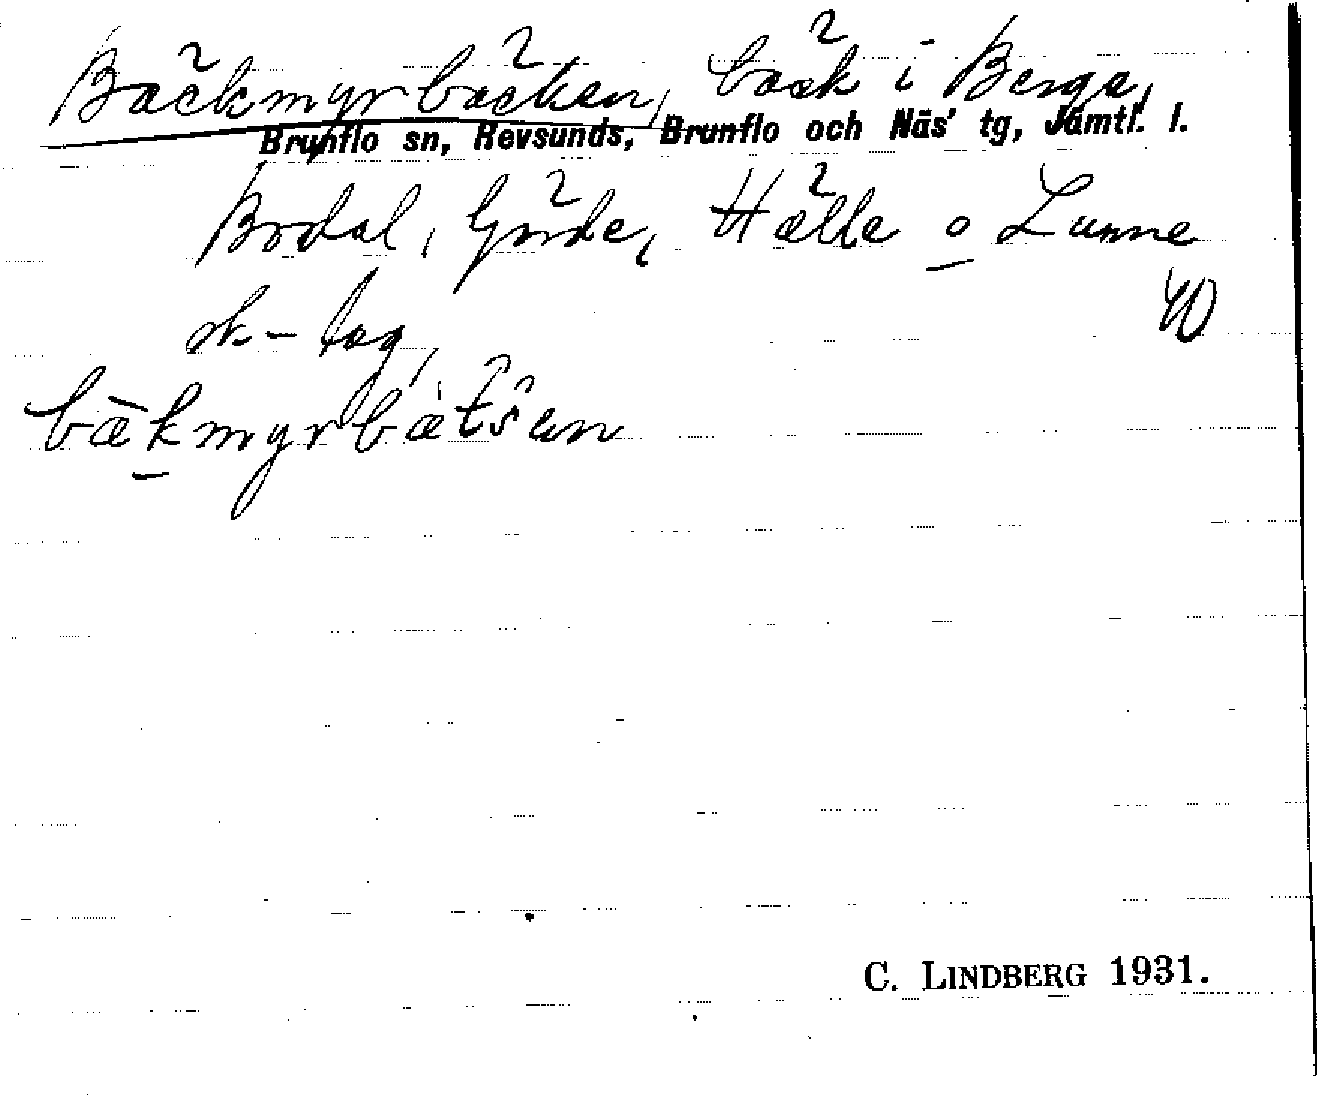 Bäckmyrbäcken, bäck i Berge,
Brunflo sn, Revsunds, Brunflo och Näs' tg, Jämtl. l.
Bodal, Gärde, Hälle o Lunne
sk-lag,
40
bäkmyrbätsen
C. LINDBERG 1931.